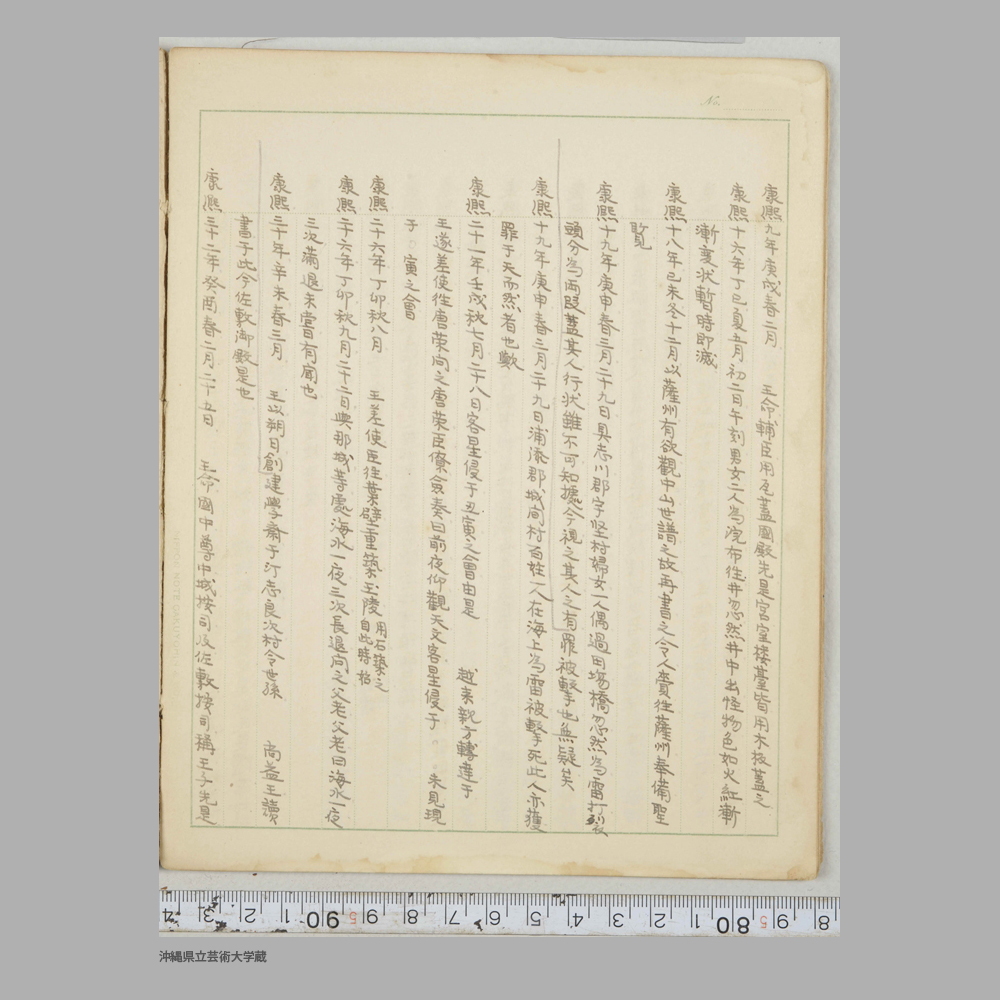 No.
康熙九年庚戌春二月　王命輔臣用瓦蓋國殿先是宮室樓臺皆用木板蓋之
康熙十六年丁巳夏五月初二日午刻男女二人為浣布徃井忽然井中出怪物色如火紅漸
漸変状暫時即滅
康熙十八年己未冬十二月以薩州有欲觀中山世譜之故再書之令人賚往薩州奉備聖
覧
康熙十九年庚申春三月二十九日具志川郡宇堅村婦女一人偶過田場橋忽然為雷打裂
頭分為両段蓋其人行状雖不可知據今視之其人之有罪被擊也無疑矣
康熙十九年庚申春三月二十九日浦添郡城間村百姓一人在海上為雷被擊死此人亦獲
罪于天而然者也歟
康熙二十一年壬戌秋七月二十八日客星侵于丑寅之會由是　越来親方轉達于
王遂差使徃唐榮向之唐榮臣僚僉奏曰前夜仰觀天文客星侵于○未見現
子○寅之會
康熙二十六年丁卯秋八月　王差使臣往葉壁重築王陵用石築之自此時始
康熙二十六年丁卯秋九月二十二日與那城等處海水一夜三次長退向之父老父老曰海水一夜
三次滿退未嘗有聞也
康熙三十年辛未春三月　王以朔日創建學齋于汀志良次村令世孫　尚益王讀
書于此今佐敷御殿是也
康熙三十二年癸酉春二月二十五日　王命國中尊中城按司及佐敷按司稱王子先是
4 3 2 1 90 5 9 8 7 6 5 4 3 2 1 80 5 9 8
沖縄県立芸術大学蔵